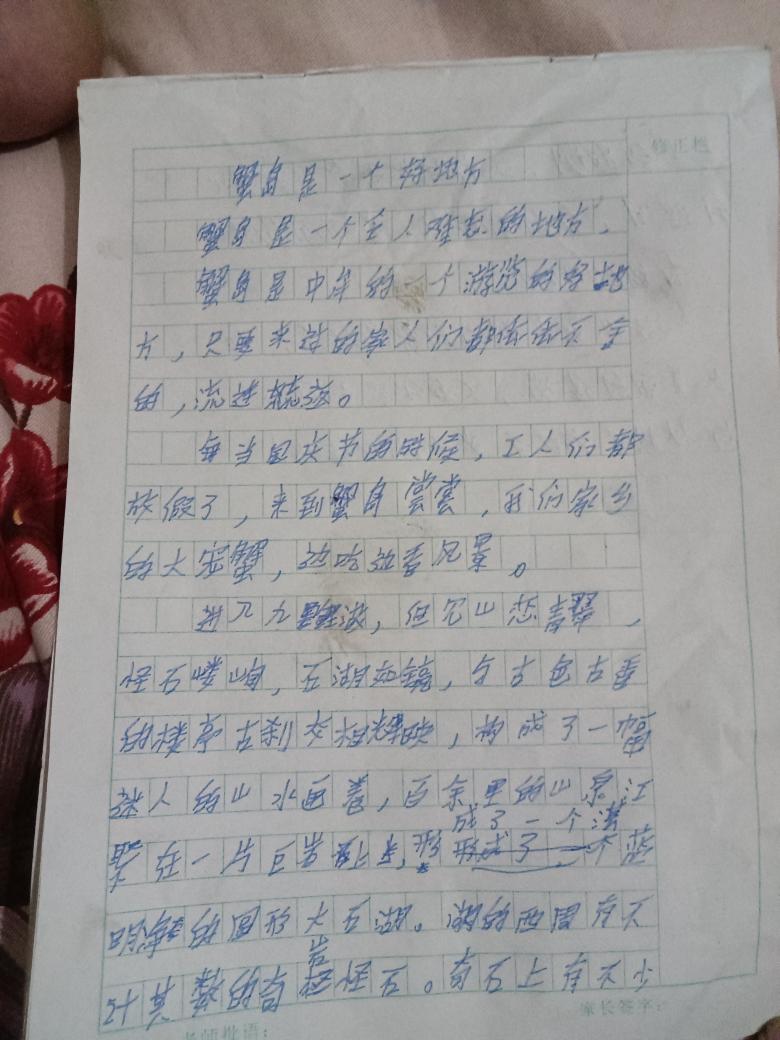 修正栏
蟹岛是一个好地方
蟹岛是一个令人难忘的地方。
蟹岛是中华的一个游览的好地
方，只要来这的家人们都活活不舍
的，流进
每当国庆节的时候，工人们都
放假了，来到蟹岛尝尝，我们家乡
的大螃蟹，边吃边看风景。
进入九龙湖，但见山峦青翠，
怪石嶙峋，五湖如镜，与古色古香
的楼亭古刹交相辉映，构成了一幅
人的山水画卷，百余里的山泉汇
聚在一片巨岩上，形成了一个清
明净的圆形大五湖。湖的四周有不
计其数的奇岩怪石。奇石上有不少
老师批语：
家长签字：